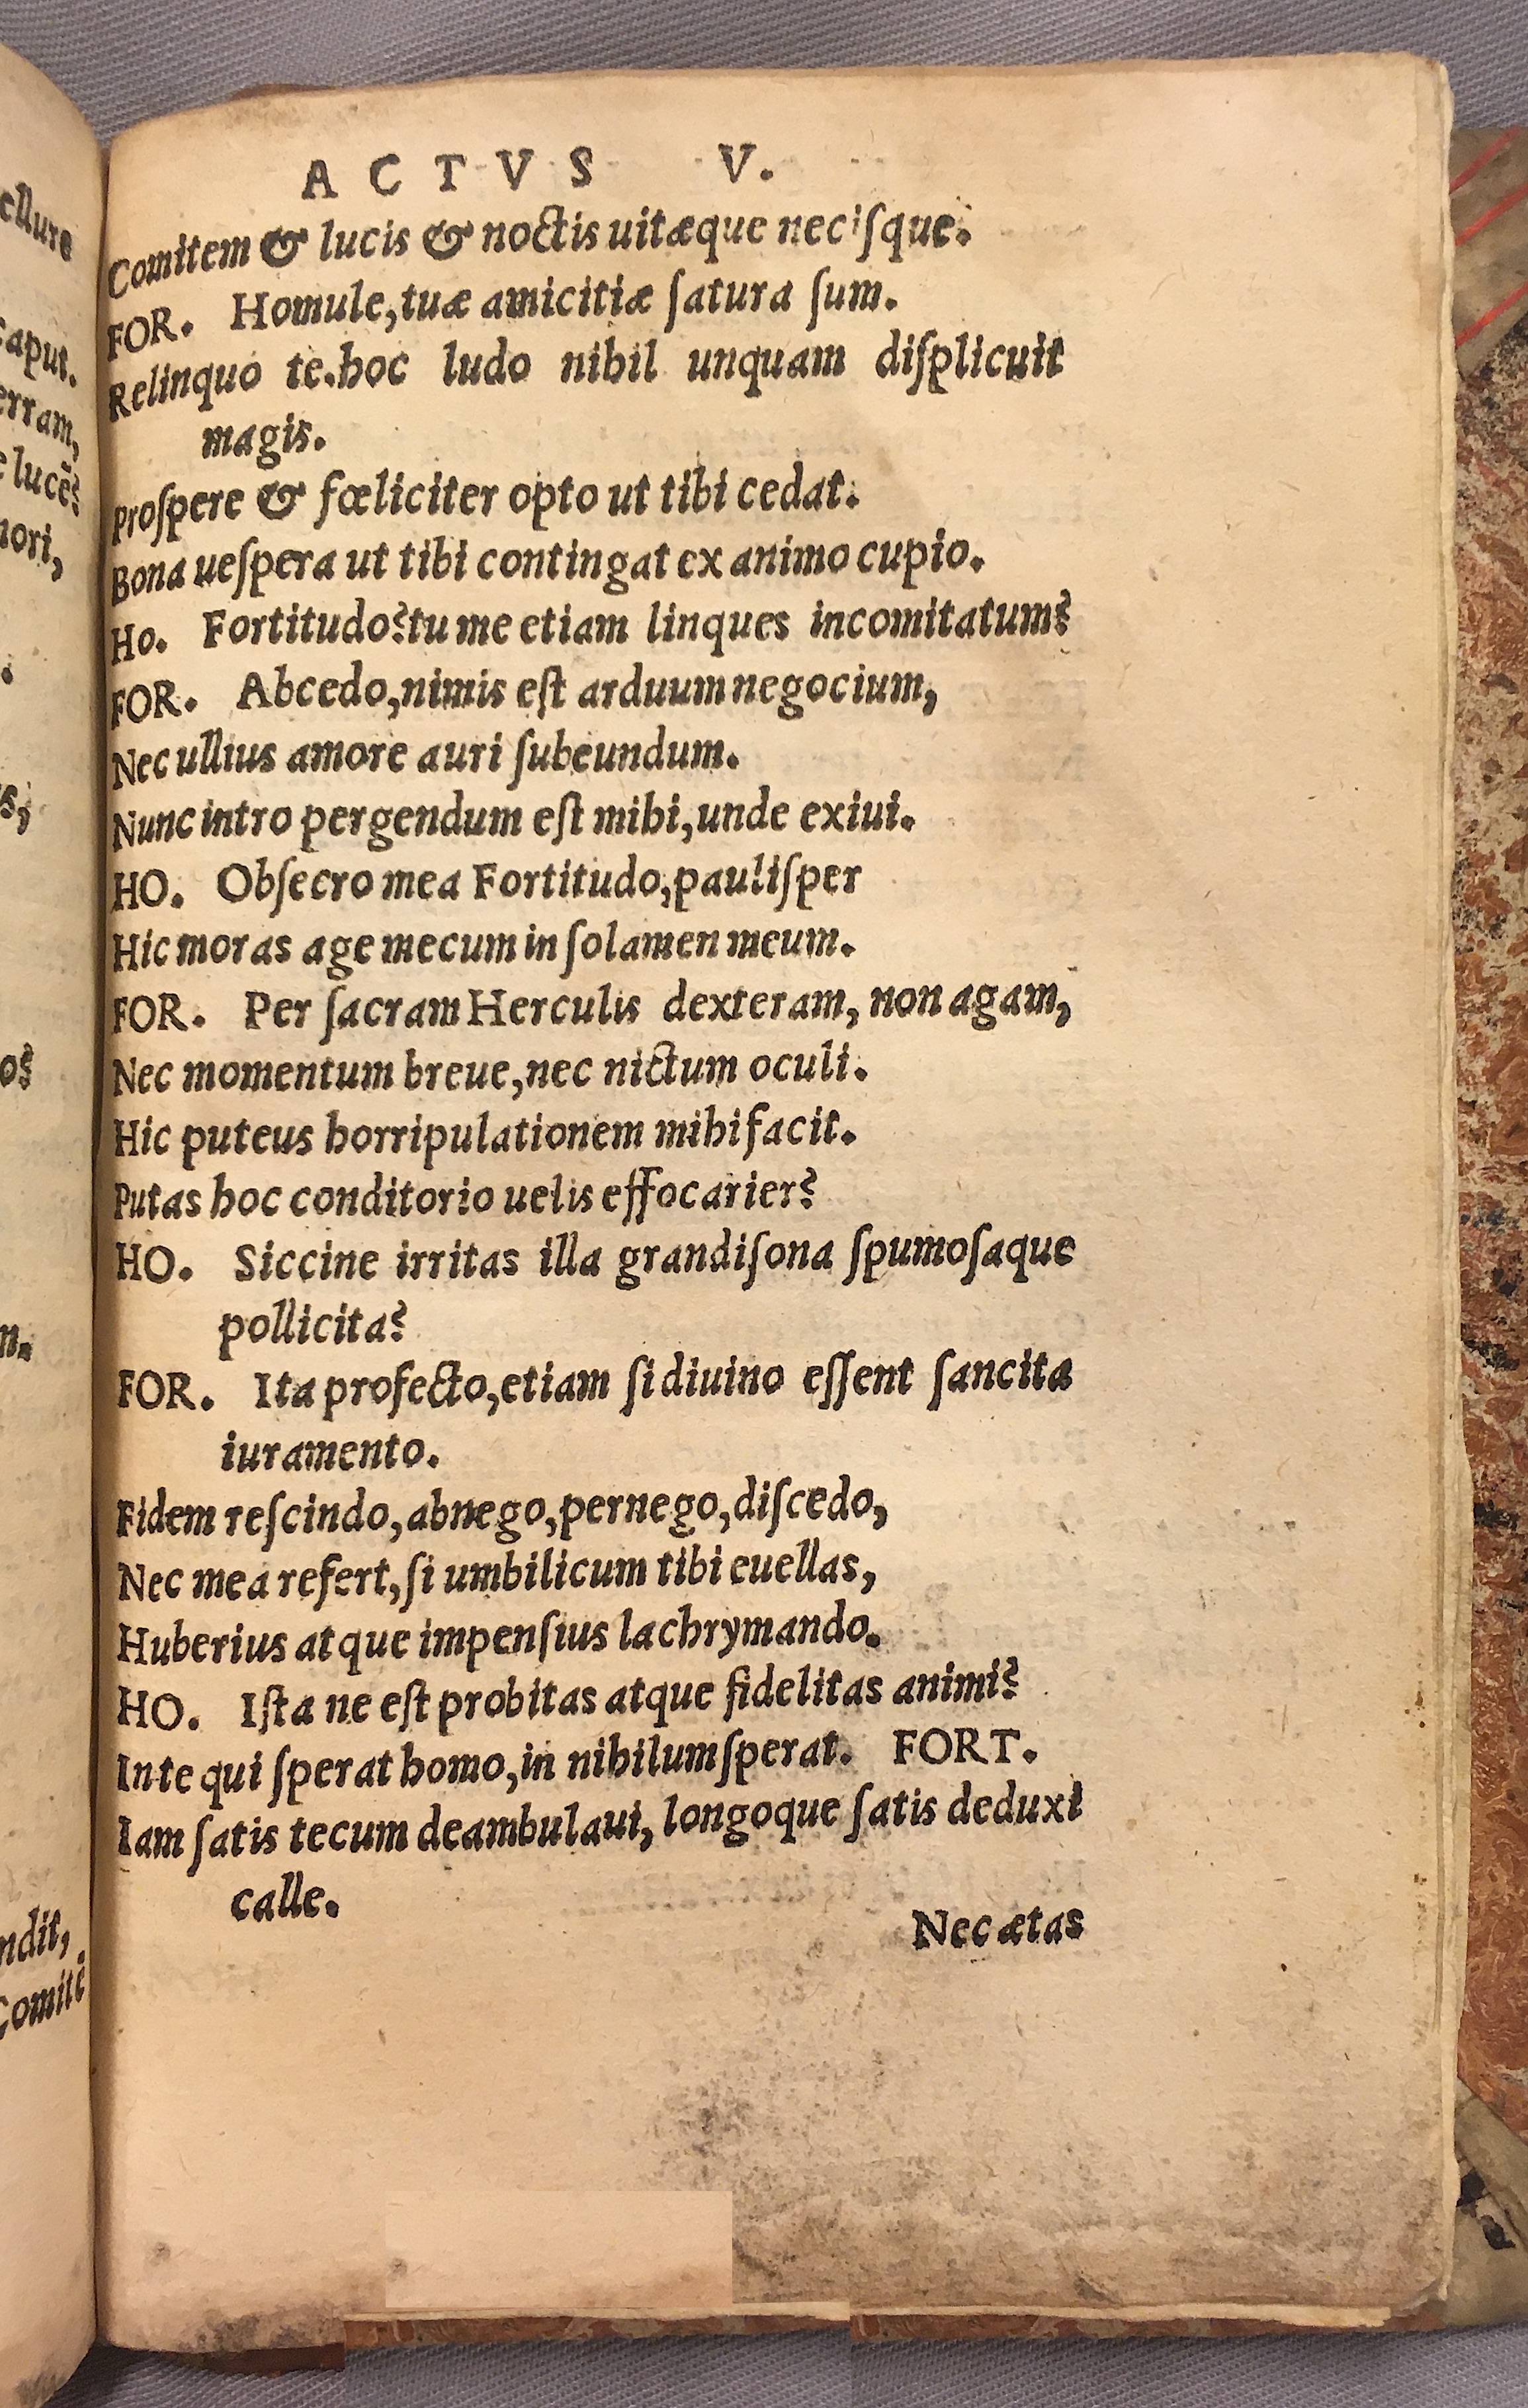 ellure
caput.
erram,
lucē?
mori,
ndit,
Comitē
ACTVS V.
Comitem & lucis & noctis uitæque necisque.
FOR. Homule, tuæ amicitiæ ſatura ſum.
Relinquo te. hoc ludo nihil unquam diſplicuit
magis.
Proſpere & fœliciter opto ut tibi cedat.
Bona ueſpera ut tibi contingat ex animo cupio.
Ho. Fortitudo? tu me etiam linques incomitatum?
FOR. Abcedo, nimis eſt arduum negocium,
Nec ullius amore auri ſubeundum.
Nunc intro pergendum eſt mihi, unde exiui.
HO. Obſecro mea Fortitudo, pauliſper
Hic moras age mecum in ſolamen meum.
FOR. Per ſacram Herculis dexteram, non agam,
Nec momentum breue, nec nictum oculi.
Hic puteus horripulationem mihi facit.
Putas hoc conditorio uelis effocarier?
HO. Siccine irritas illa grandiſona ſpumoſaque
pollicita?
FOR. Ita profecto, etiam ſi diuino eſſent ſancita
iuramento.
Fidem reſcindo, abnego, pernego, diſcedo,
Nec mea refert, ſi umbilicum tibi euellas,
Huberius atque impenſius lachrymando.
HO. Iſta ne eſt probitas atque fidelitas animi?
In te qui ſperat homo, in nihilum ſperat. FORT.
Iam ſatis tecum deambulaui, longoque ſatis deduxi
calle.
Nec ætas